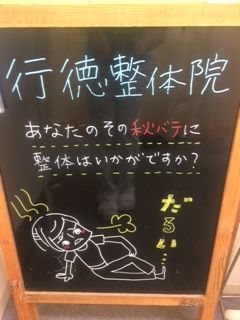 行徳整体院
あなたのその秋バテに
整体はいかがですか?
だるい…